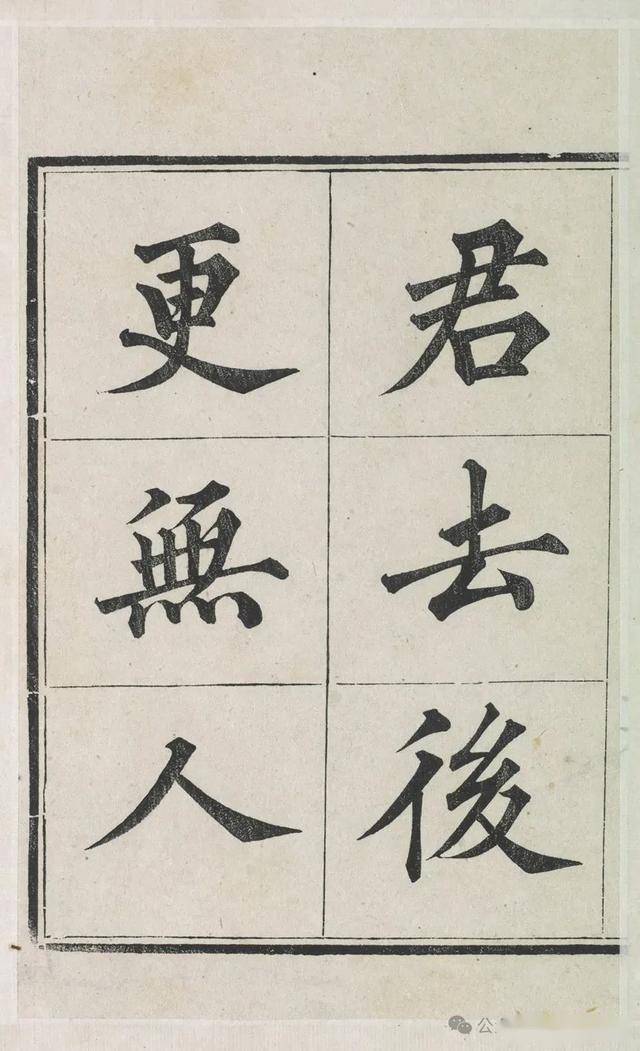 君去後
更無人
公